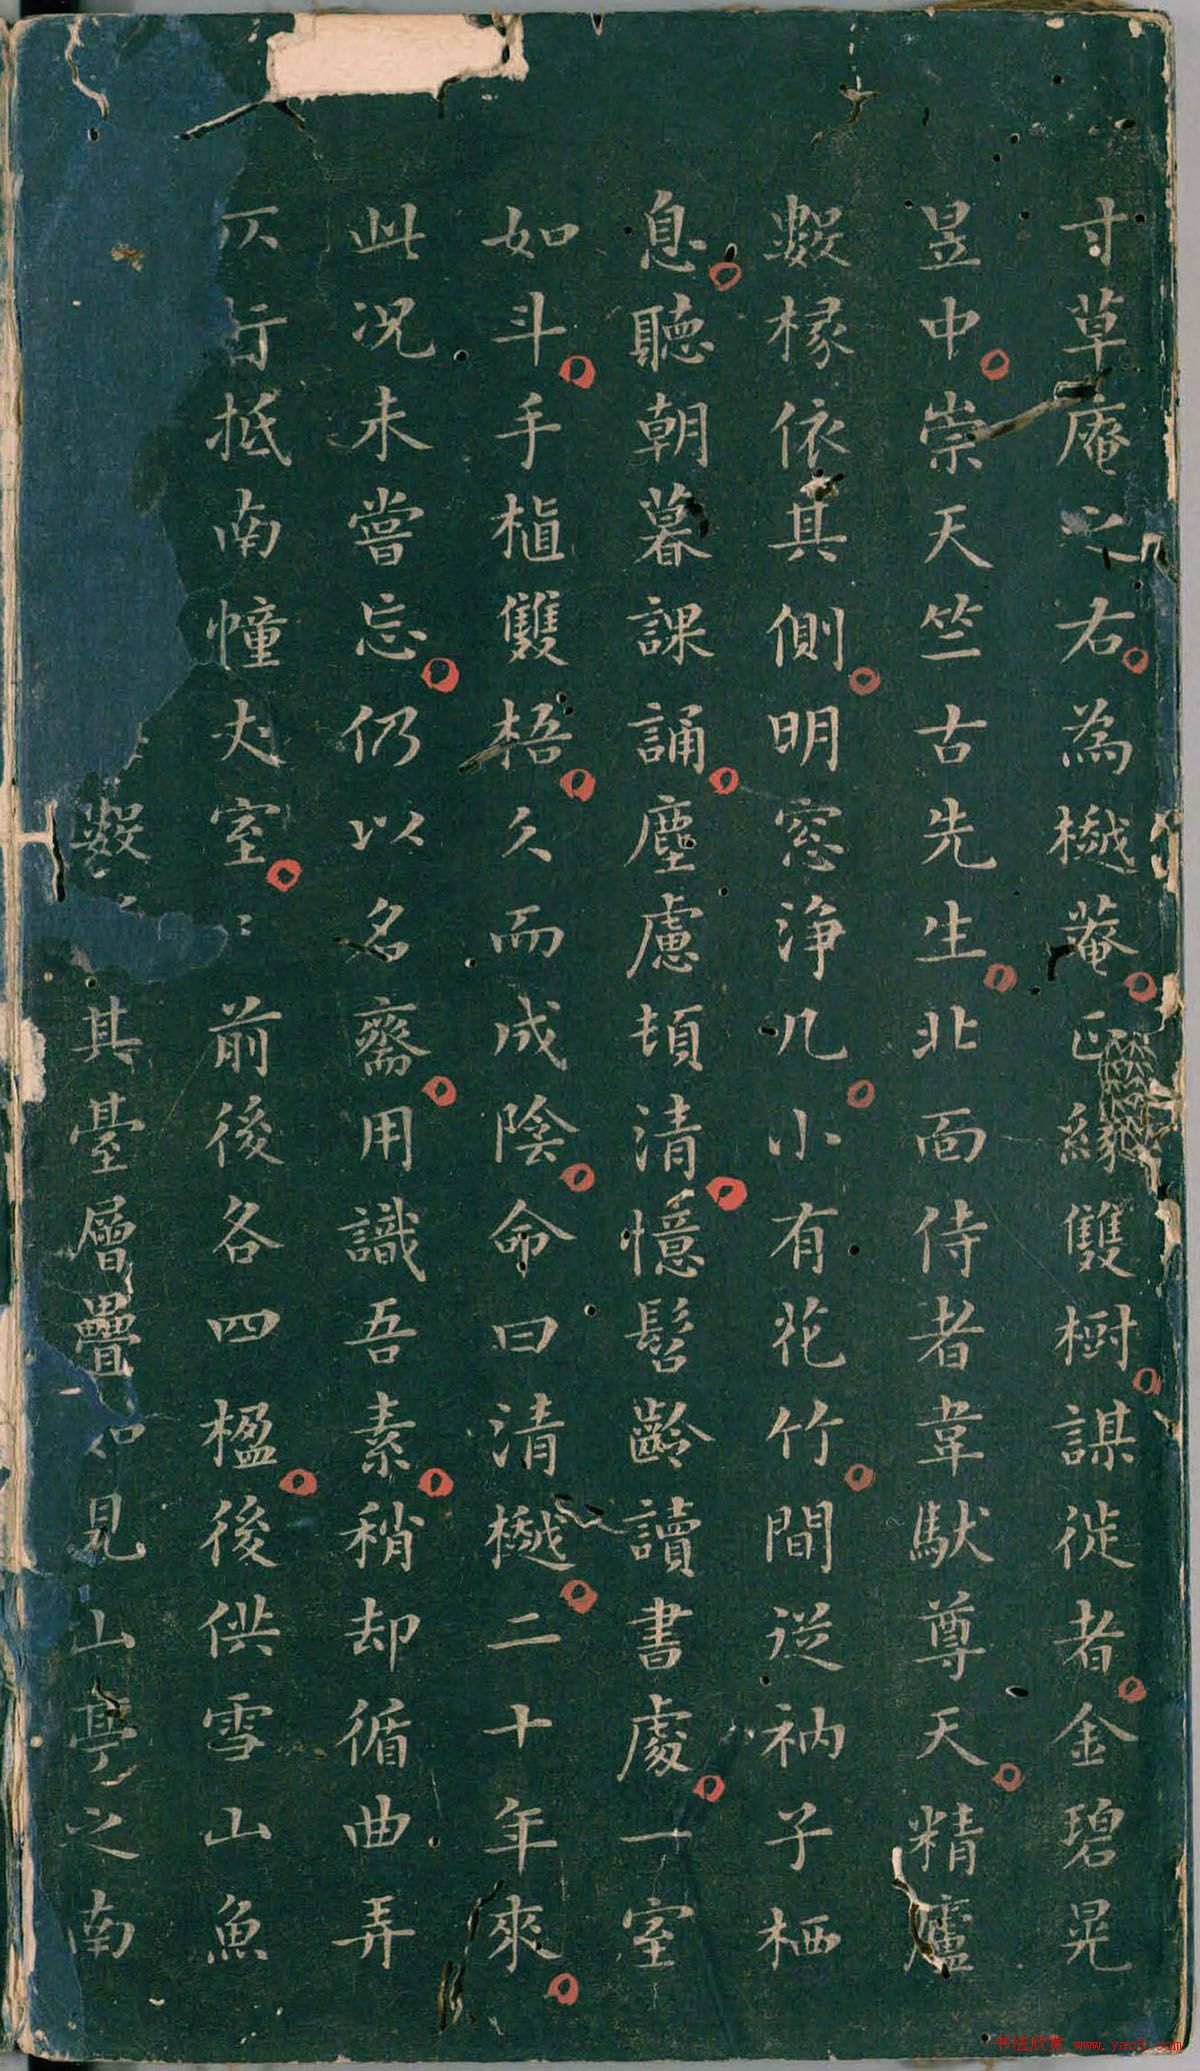 寸草庵之右為樾菴正緣雙樹謀徙者金碧晃
昱中崇天竺古先生北面侍者韋馱尊天精廬
數椽依其側明窓浄几小有花竹間延衲子栖
息聽朝暮課誦塵慮頓清憶髫齡讀書處一室
如斗手植雙梧久而成陰命曰清樾二十年來
此况未嘗忘仍以名齋用識吾素稍却循曲弄
行抵南幢大室前後各四楹後供雪山魚
數其臺層疊見山亭之南
书法欣赏 www.yac8.com